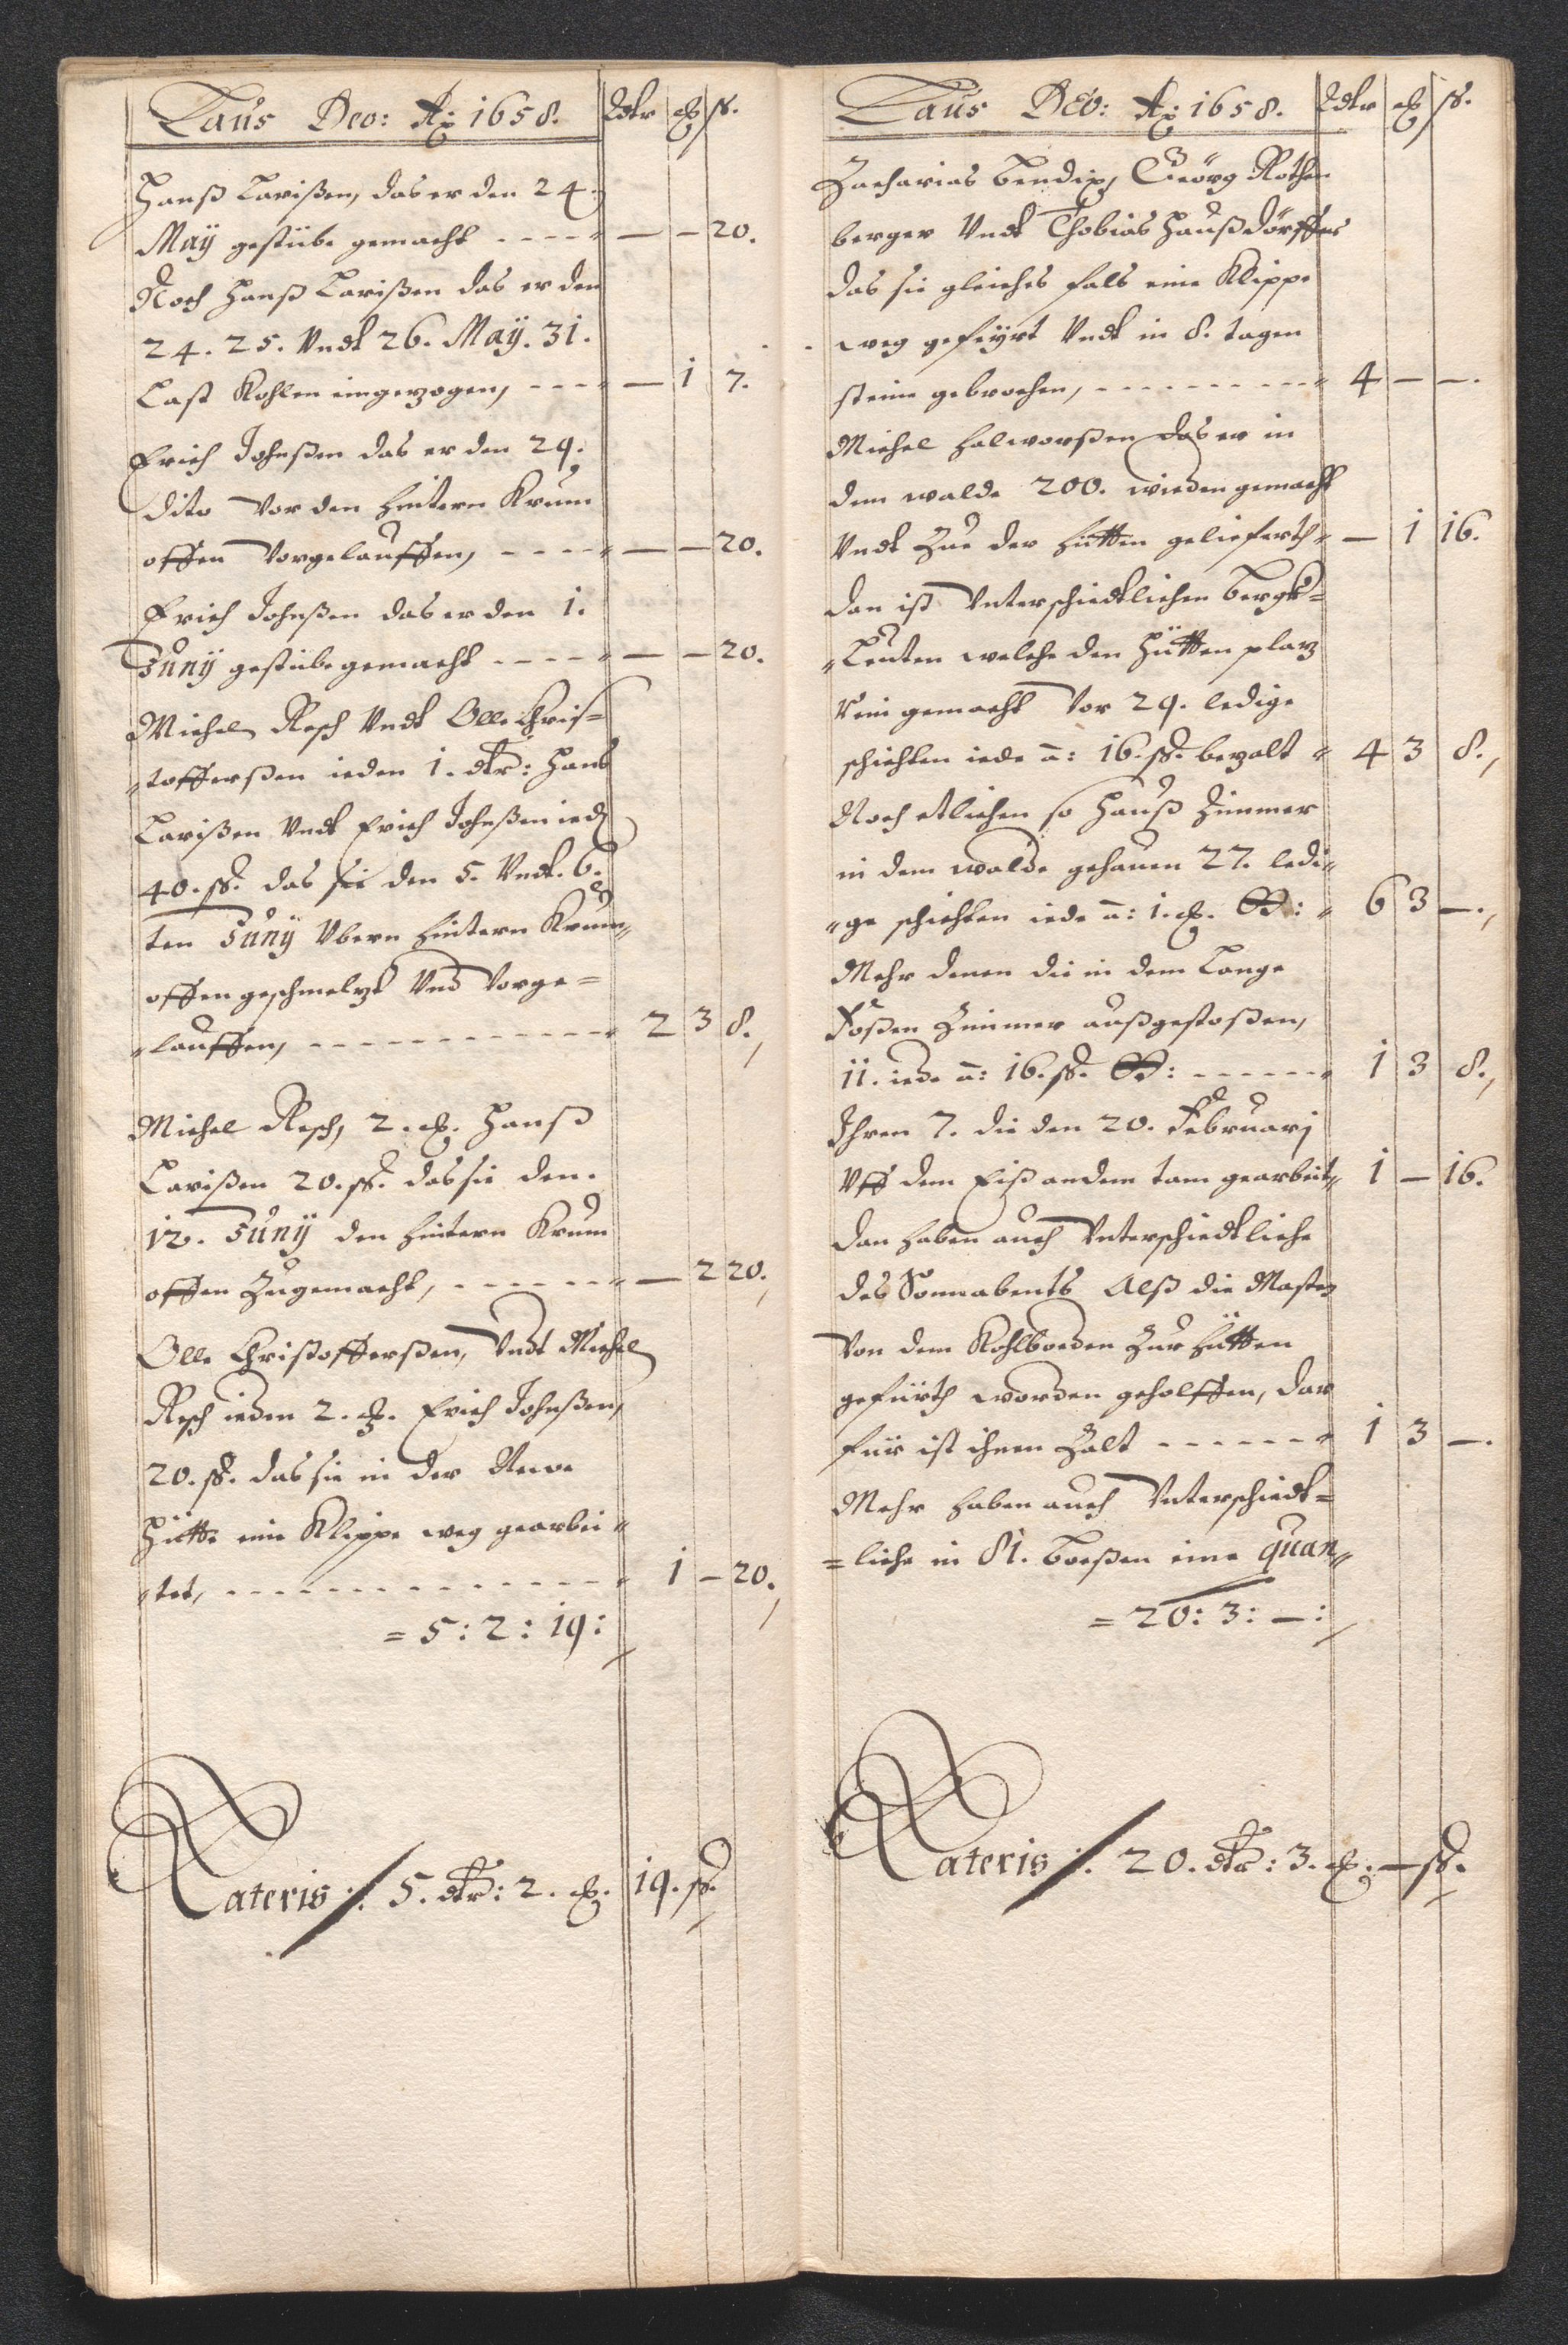 Laus Deo: Ao: 1658. Rdtr ß.
Hanß Larißen, das er den 24.
Maÿ gestübe gemacht - - - - — — 20.
Noch Hanß Larißen das er den
24. 25. Undt 26. Maÿ. 31.
Last Kohlen eingezogen, - - - - — 1 7.
Erich Johnßen das er den 29.
dito vor den hintern Krum
offen vorgelauffen, - - - - — — 20.
Erich Johnßen das er den 1.
Junÿ gestübe gemacht - - - - — — 20.
Michel Resch Undt Olle Chris=
"tofferßen ieden 1. dtr: Hans
Larißen Undt Erich Johnßen ied
40. ß. das sie den 5. Undt. 6.
ten Junÿ Vbern hintern Krum"
offen geschmelzt Und vorge=
"lauffen, - - - - - - - - 2 3 8.
Michel Resch, 2. Hanß
Larißen 20. ß. das sie den.
12. Junÿ den hintern Krum
offen Zugemacht, - - - - - — 2 20.
Olle Christofferßen, Undt Michel
Resch ieden 2. Erich Johnßen,
20. ß. das sie in der Newe
Hütte eine Klippe weg gearbei"
"tet, - - - - - - - - - - 1 — 20.
= 5: 2: 19:
Lateris: 5. dtr: 2. 19. ß.
Laus DEO: Ao: 1658. Rdtr ß.
Zacharias Bendix, Geörg Rothen
berger Undt Thobias Haußdörffer
das sie gleiches fals eine Klippe
weg gefeyrt Undt in 8. tagen
steine gebrochen, - - - - - - - 4 — —.
Michel Halworßen das er in
dem walde 200. wieden gemacht
Undt Zue der hütten geliefferth" — 1 16.
Dan ist Unterschiedtlichen Bergk=
"Leuten welche den Hütten plaz
Rein gemacht vor 29. ledige
schichten iede â: 16. ß. bezalt " 4 3 8.
Noch etlichen so Hauß Zimmer
in dem walde gehauen 27. ledi"
"ge schichten iede â: 1. " 6 3 —.
Mehr denen die in dem Lange
Foßen Zimmer außgestoßen,
11. iede â: 16. ß. - - - - - 1 3 8.
Ihren 7. die den 20. Februarj
Uff dem Eiß an dem tam gearbeit" 1 — 16.
Dan haben auch Unterschiedtliche
des Sonnabents Alß die Master
Von dem Kohlborden Zur hütten
gefürth worden geholffen, dar
für ist ihnen Zalt - - - - - - 1 3 —.
Mehr haben auch Unterschiedt=
=liche in 81. Boeßen eine quan"
= 20: 3: —:
Lateris: 20. dtr: 3. — ß.